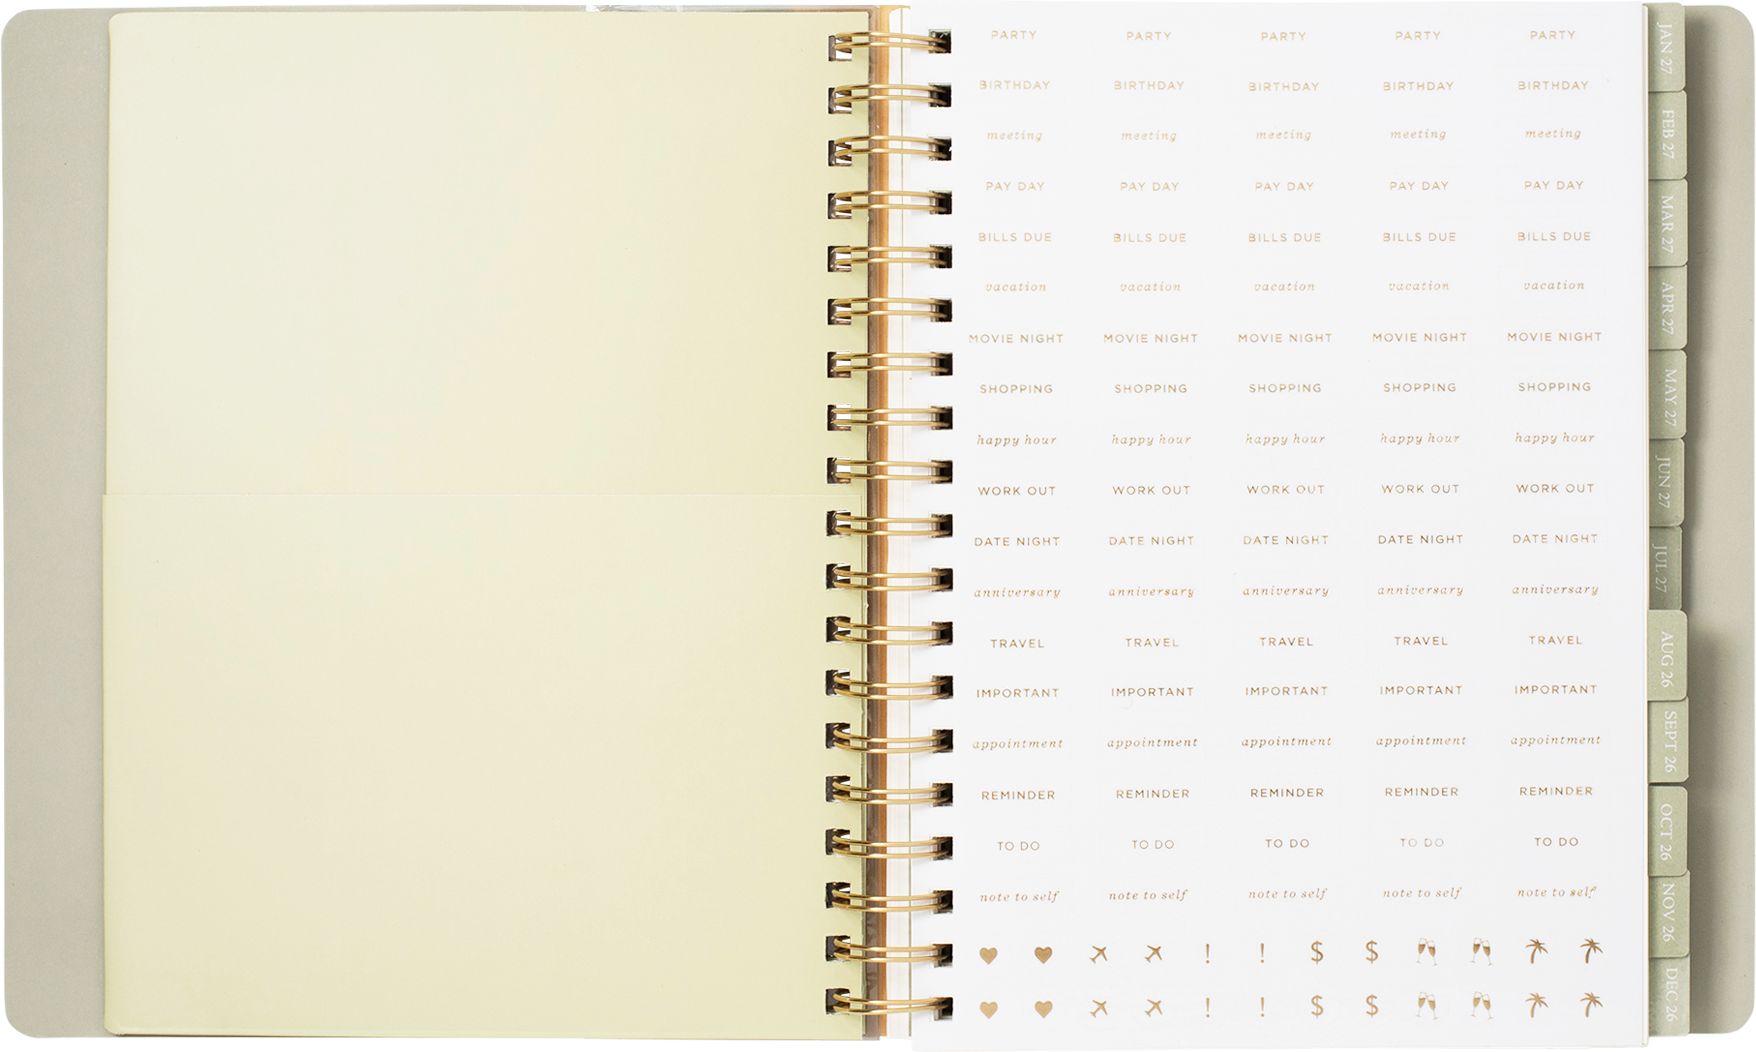 PARTY PARTY PARTY PARTY PARTY
BIRTHDAY BIRTHDAY BIRTHDAY BIRTHDAY BIRTHDAY
meeting meeting meeting meeting meeting
PAY DAY PAY DAY PAY DAY PAY DAY PAY DAY
BILLS DUE BILLS DUE BILLS DUE BILLS DUE BILLS DUE
vacation vacation vacation vacation vacation
MOVIE NIGHT MOVIE NIGHT MOVIE NIGHT MOVIE NIGHT MOVIE NIGHT
SHOPPING SHOPPING SHOPPING SHOPPING SHOPPING
happy hour happy hour happy hour happy hour happy hour
WORK OUT WORK OUT WORK OUT WORK OUT WORK OUT
DATE NIGHT DATE NIGHT DATE NIGHT DATE NIGHT DATE NIGHT
anniversary anniversary anniversary anniversary anniversary
TRAVEL TRAVEL TRAVEL TRAVEL TRAVEL
IMPORTANT IMPORTANT IMPORTANT IMPORTANT IMPORTANT
appointment appointment appointment appointment appointment
REMINDER REMINDER REMINDER REMINDER REMINDER
TO DO TO DO TO DO TO DO TO DO
note to self note to self note to self note to self note to self
! ! $ $
! ! $ $
JAN 27
FEB 27
MAR 27
APR 27
MAY 27
JUN 27
JUL 27
AUG 26
SEPT 26
OCT 26
NOV 26
DEC 26